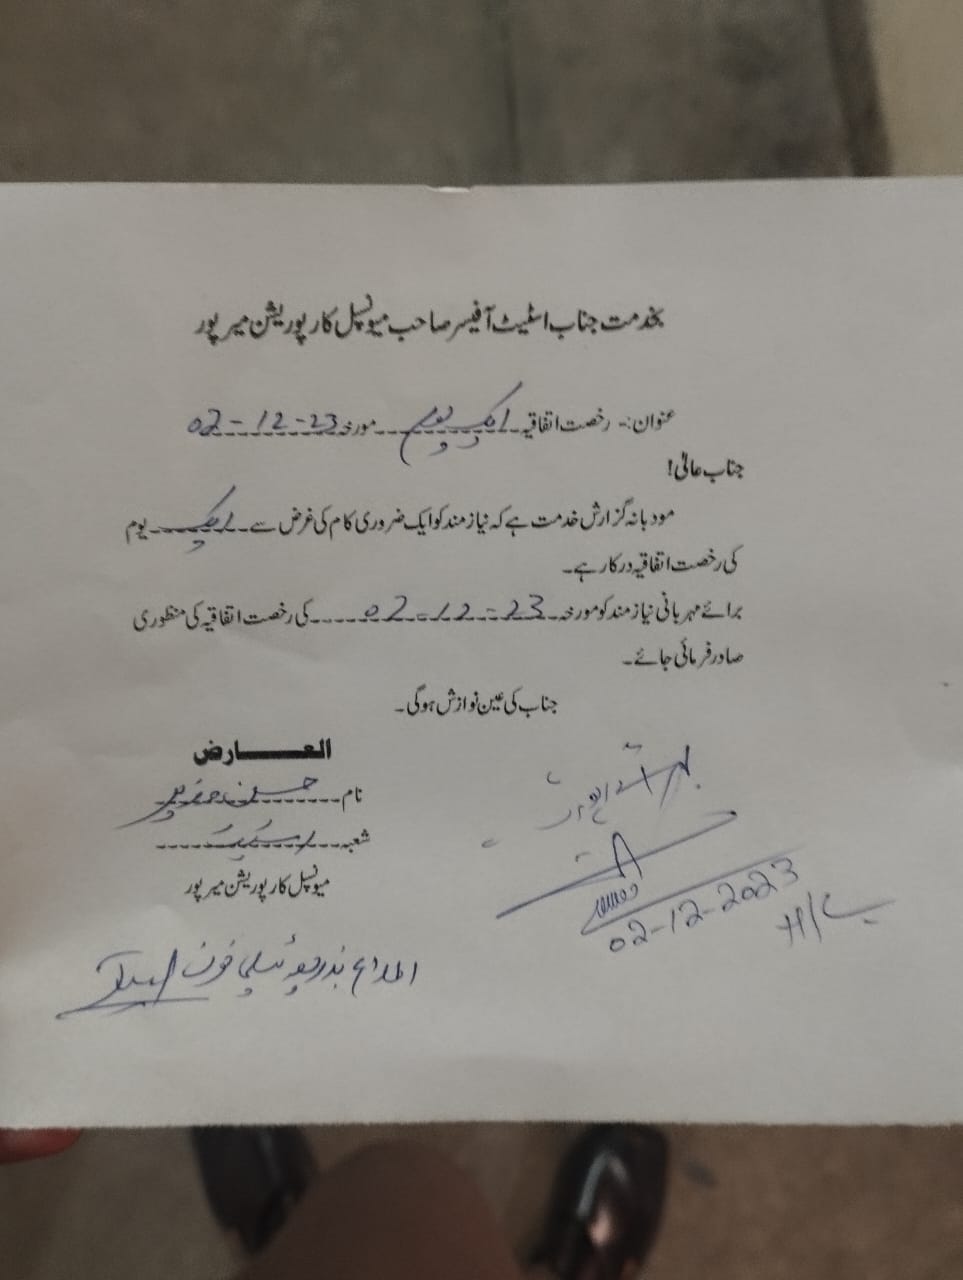 بخدمت جناب اسٹیٹ آفیسر صاحب میونسپل کارپوریشن میرپور
عنوان:۔ رخصت اتفاقیہ ایک یوم مورخہ 02-12-23
جناب عالیٰ!
مودبانہ گزارش خدمت ہے کہ نیاز مند کو ایک ضروری کام کی غرض سے ایک یوم
کی رخصت اتفاقیہ درکار ہے۔
برائے مہربانی نیاز مند کو مورخہ 02-12-23 کی رخصت اتفاقیہ کی منظوری
صادر فرمائی جائے۔
جناب کی عین نوازش ہوگی۔
العارض
نام
شعبہ اسٹیٹ
میونسپل کارپوریشن میرپور
02-12-2023
اطلاع بذریعہ ٹیلی فون